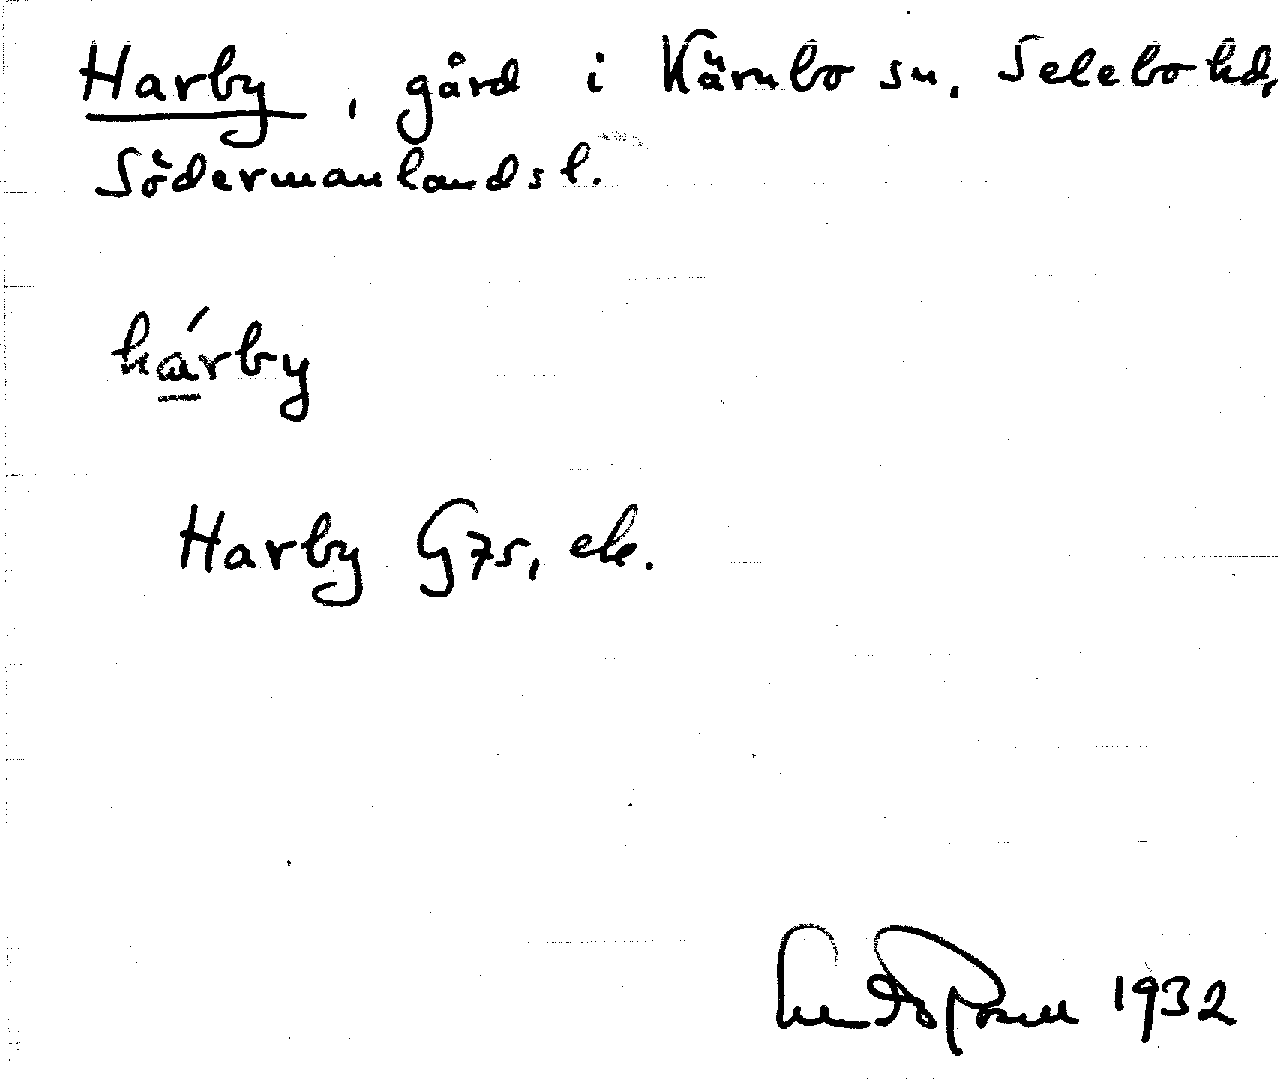 Harby, gård i Kärnbo sn. Selebo hd,
Södermanlands l.
hárby
Harby G75, ek.
1932